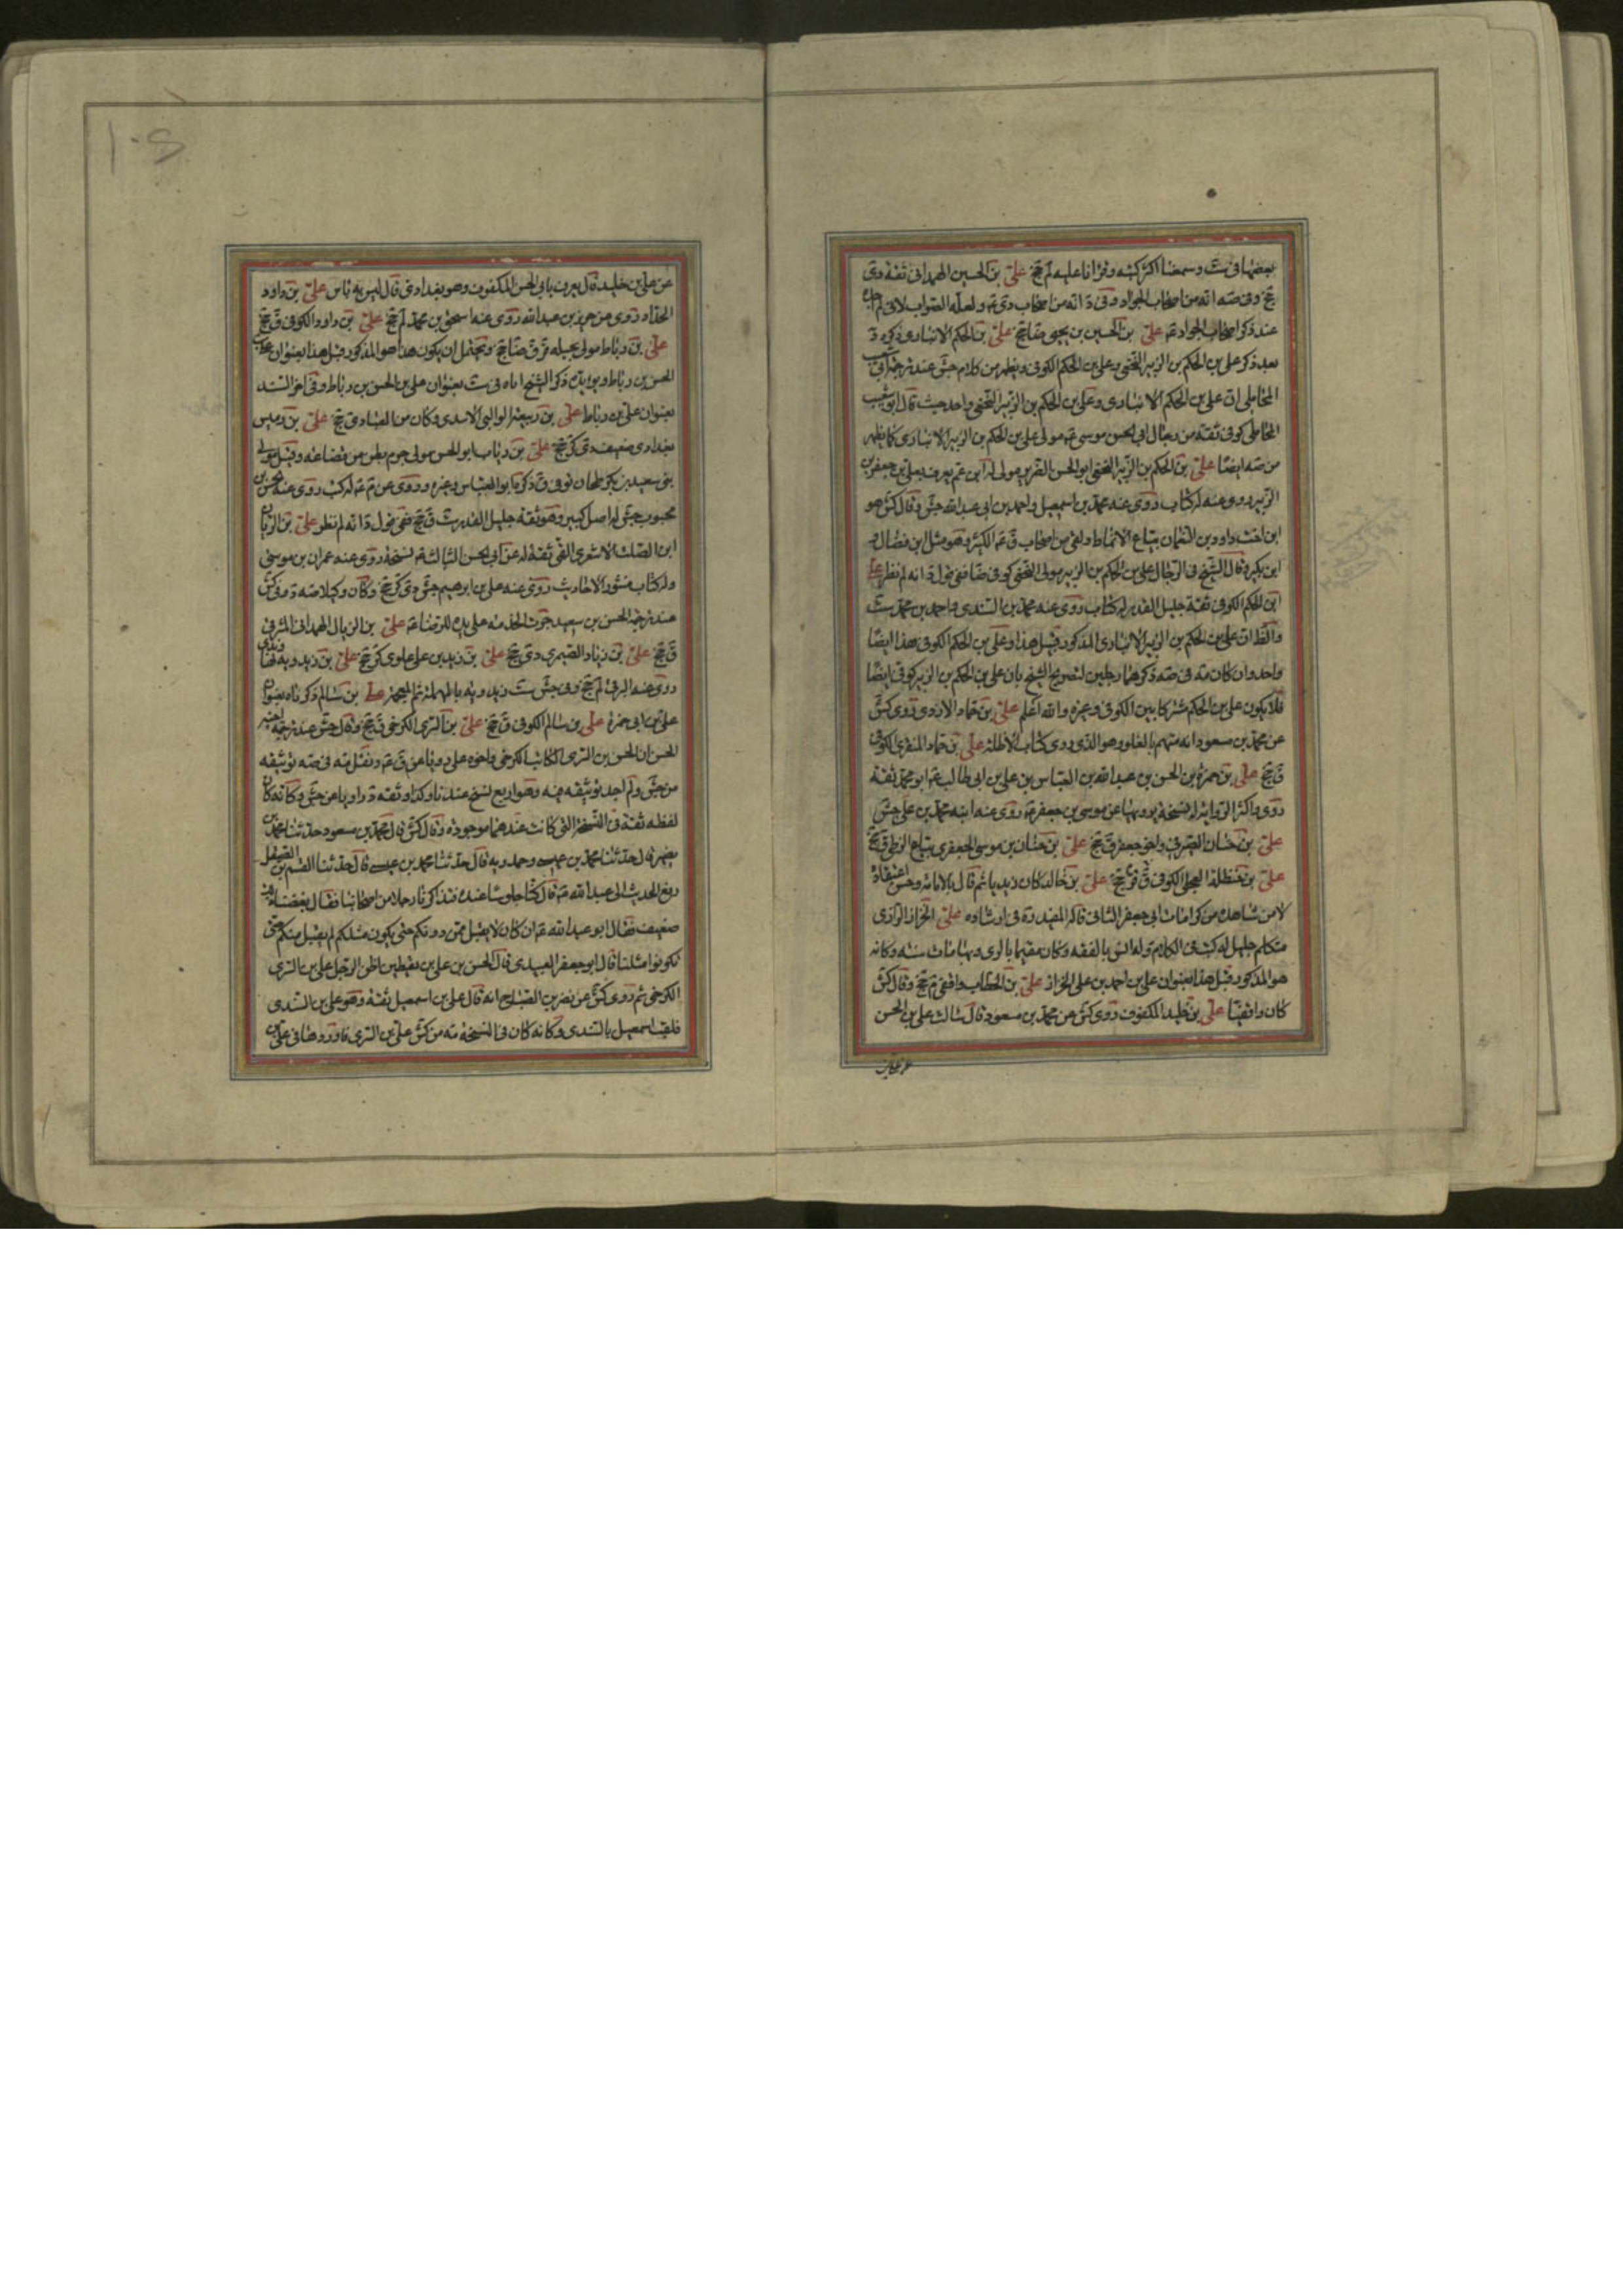 بعضها فى ست وسمعنا اكثر كتبه وقرأنا عليه لم جخ على بن الحسين الهمدانى ثقة دى
جخ وفى صه انه من اصحاب الجواد وفى د انه من اصحاب دى ع ولعله الصواب لانى لم اجده
عند ذكر اصحاب الجواد ع على بن الحسين بن يحيى ضا جخ على بن الحكم الانبارى ذكره د
بعد ذكر على بن الحكم بن الزبير النخعى وعلى بن الحكم الكوفى ويظهر من كلام جش عند ترجمة ابى شعيب
المحاملى ان على بن الحكم الانبارى وعلى بن الحكم بن الزبير النخعى واحد حيث قال ابو شعيب
المحاملى كوفى ثقة من رجال ابى الحسن موسى ع مولى على بن الحكم بن الزبير الانبارى كما يظهر
من صه ايضا على بن الحكم بن الزبير النخعى ابو الحسن الضرير مولى له ابن عم يعرف بعلى بن جعفر بن
الزبير روى عنه له كتاب روى عنه محمد بن اسمعيل واحمد بن ابى عبد الله جش وقال كش هو
ابن اخت داود بن النعمان بياع الانماط ولقى من اصحاب ق ع الكثير وهو مثل ابن فضال و
ابن بكير وقال الشيخ فى الرجال على بن الحكم بن الزبير مولى النخع كوفى ضا ففى قول د انه لم نظر على
ابن الحكم الكوفى ثقة جليل القدر له كتاب روى عنه محمد بن السندى واحمد بن محمد ست
والظ ان على بن الحكم بن الزبير الانبارى المذكور قبيل هذا وعلى بن الحكم الكوفى هذا ايضا
واحد وان كان مه فى صه ذكرهما رجلين لتصريح الشيخ بان على بن الحكم بن الزبير كوفى ايضا
فلا يكون على بن الحكم مشتركا بين الكوفى وغيره والله اعلم على بن حماد الازدى روى كش
عن محمد بن مسعود انه متهم بالغلو وهو الذى روى كتاب الاظلة على بن حماد المنقرى الكوفى
ق جخ على بن حمزة بن الحسن بن عبيد الله بن العباس بن على بن ابى طالب ع ابو محمد ثقة
روى واكثر الرواية له نسخة يرويها عن موسى بن جعفر ع روى عنه ابنه محمد بن على جش
على بن حنان الصيرفى واخى جعفر ق جخ على بن حنان بن موسى الجعفرى بياع الزطى ق جخ
على بن حنظلة العجلى الكوفى ق قر جخ على بن خالد كان زيديا ثم قال بالامامة وحسن اعتقاده
لامر شاهده من كرامات ابى جعفر الثانى قاله المفيد ره فى ارشاده على الخزاز الرازى
متكلم جليل له كتب فى الكلام وله انس بالفقه وكان مقيما بالرى وبها مات ست وكانه
هو المذكور قبل هذا بعنوان على بن احمد بن على الخزاز على بن الخطاب واقفى م جخ وقال كش
كان واقفيا على بن خليد المكفوف روى كش عن محمد بن مسعود قال سالت على بن الحسن
عن على بن
عن على بن خليد قال يعرف بابى الحسن المكفوف وهو بغدادى قال ليس به باس على بن داود
الحداد روى عن حريز بن عبد الله روى عنه اسحق بن محمد لم جخ على بن داود الكوفى ق جخ
على بن رباط مولى بجيلة قر ق ضا جخ ويحتمل ان يكون هذا هو المذكور قبل هذا بعنوان على بن
الحسن بن رباط ويؤيده ذكر الشيخ اياه فى ست بعنوان على بن الحسن بن رباط وفى اخر السند
بعنوان على بن رباط على بن ربيعة الوالبى الاسدى وكان من العباد ى جخ على بن رميس
بغدادى ضعيف دى كر جخ على بن رئاب ابو الحسن مولى جرم بطن من قضاعة وقيل مولى
بنى سعد بن بكر طحان كوفى ق ذكره ابو العباس وغيره وروى عن م ع له كتب روى عنه الحسن بن
محبوب جش له اصل كبير وهو ثقة جليل القدر ست ق جخ ففى قول د انه لم نظر على بن الريان
ابن الصلت الاشعرى القمى ثقة له عن ابى الحسن الثالث ع نسخة روى عنه عمران بن موسى
وله كتاب منثور الاحاديث روى عنه على بن ابرهيم جش دى كر جخ وكان وكيلا صه د وفى كش
عند ترجمة الحسن بن سعيد جرت الخدمة على يده للرضا ع على بن الزيال الهمدانى المشرقى
ق جخ على بن زياد الصيمرى دى جخ على بن زيد بن على علوى كر جخ على بن زيدويه نهاوندى
روى عنه البرقى لم جخ وفى جش ست زيدويه بالمهملة ثم المعجمة على بن سالم ذكرناه بعنوان
على بن ابى حمزة على بن سالم الكوفى ق جخ على بن السرى الكرخى ق جخ وقال جش عند ترجمة اخيه
الحسن ان الحسن بن السرى الكاتب الكرخى واخوه على رويا عن ق ع ونقل مه فى صه توثيقه
من جش ولم اجد توثيقه فيه وهو اربع نسخ عندنا وكذا وثقه د راويا عن جش وكانه كان
لفظه ثقة فى النسخة التى كانت عندهما موجودة وقال كش قال محمد بن مسعود حدثنا محمد بن
نصير قال حدثنا محمد بن عيسى وحمدويه قال حدثنا محمد بن عيسى قال حدثنا القسم الصيقل
رفع الحديث الى عبد الله ع قال كنا جلوسا عنده فتذاكرنا رجلا من اصحابنا فقال بعضنا ذلك
ضعيف فقال ابو عبد الله ع ان كان لا يقبل ممن دونكم حتى يكون مثلكم لم يقبل منكم حتى
تكونوا مثلنا قال ابو جعفر العبيدى قال الحسن بن على بن يقطين اظن الرجل على بن السرى
الكرخى ثم روى كش عن نصر بن الصباح انه قال على بن اسمعيل ثقة وهو على بن السندى
فلقب اسمعيل بالسندى وكانه كان فى النسخة مه من كش على بن السرى فاورد هنا فى على بن